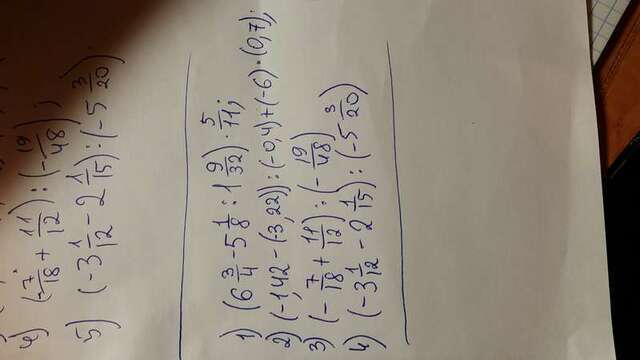 4) (-7/18 + 11/12) : (-19/48);
5) (-3 1/12 - 2 1/15) : (-5 3/20)
1) (6 3/4 - 5 1/8 : 1 9/32) · 5/11;
2) (-1,42 - (-3,22)) : (-0,4) + (-6) · (0,7);
3) (-7/18 + 11/12) : (-19/48)
4) (-3 1/12 - 2 1/15) : (-5 3/20)